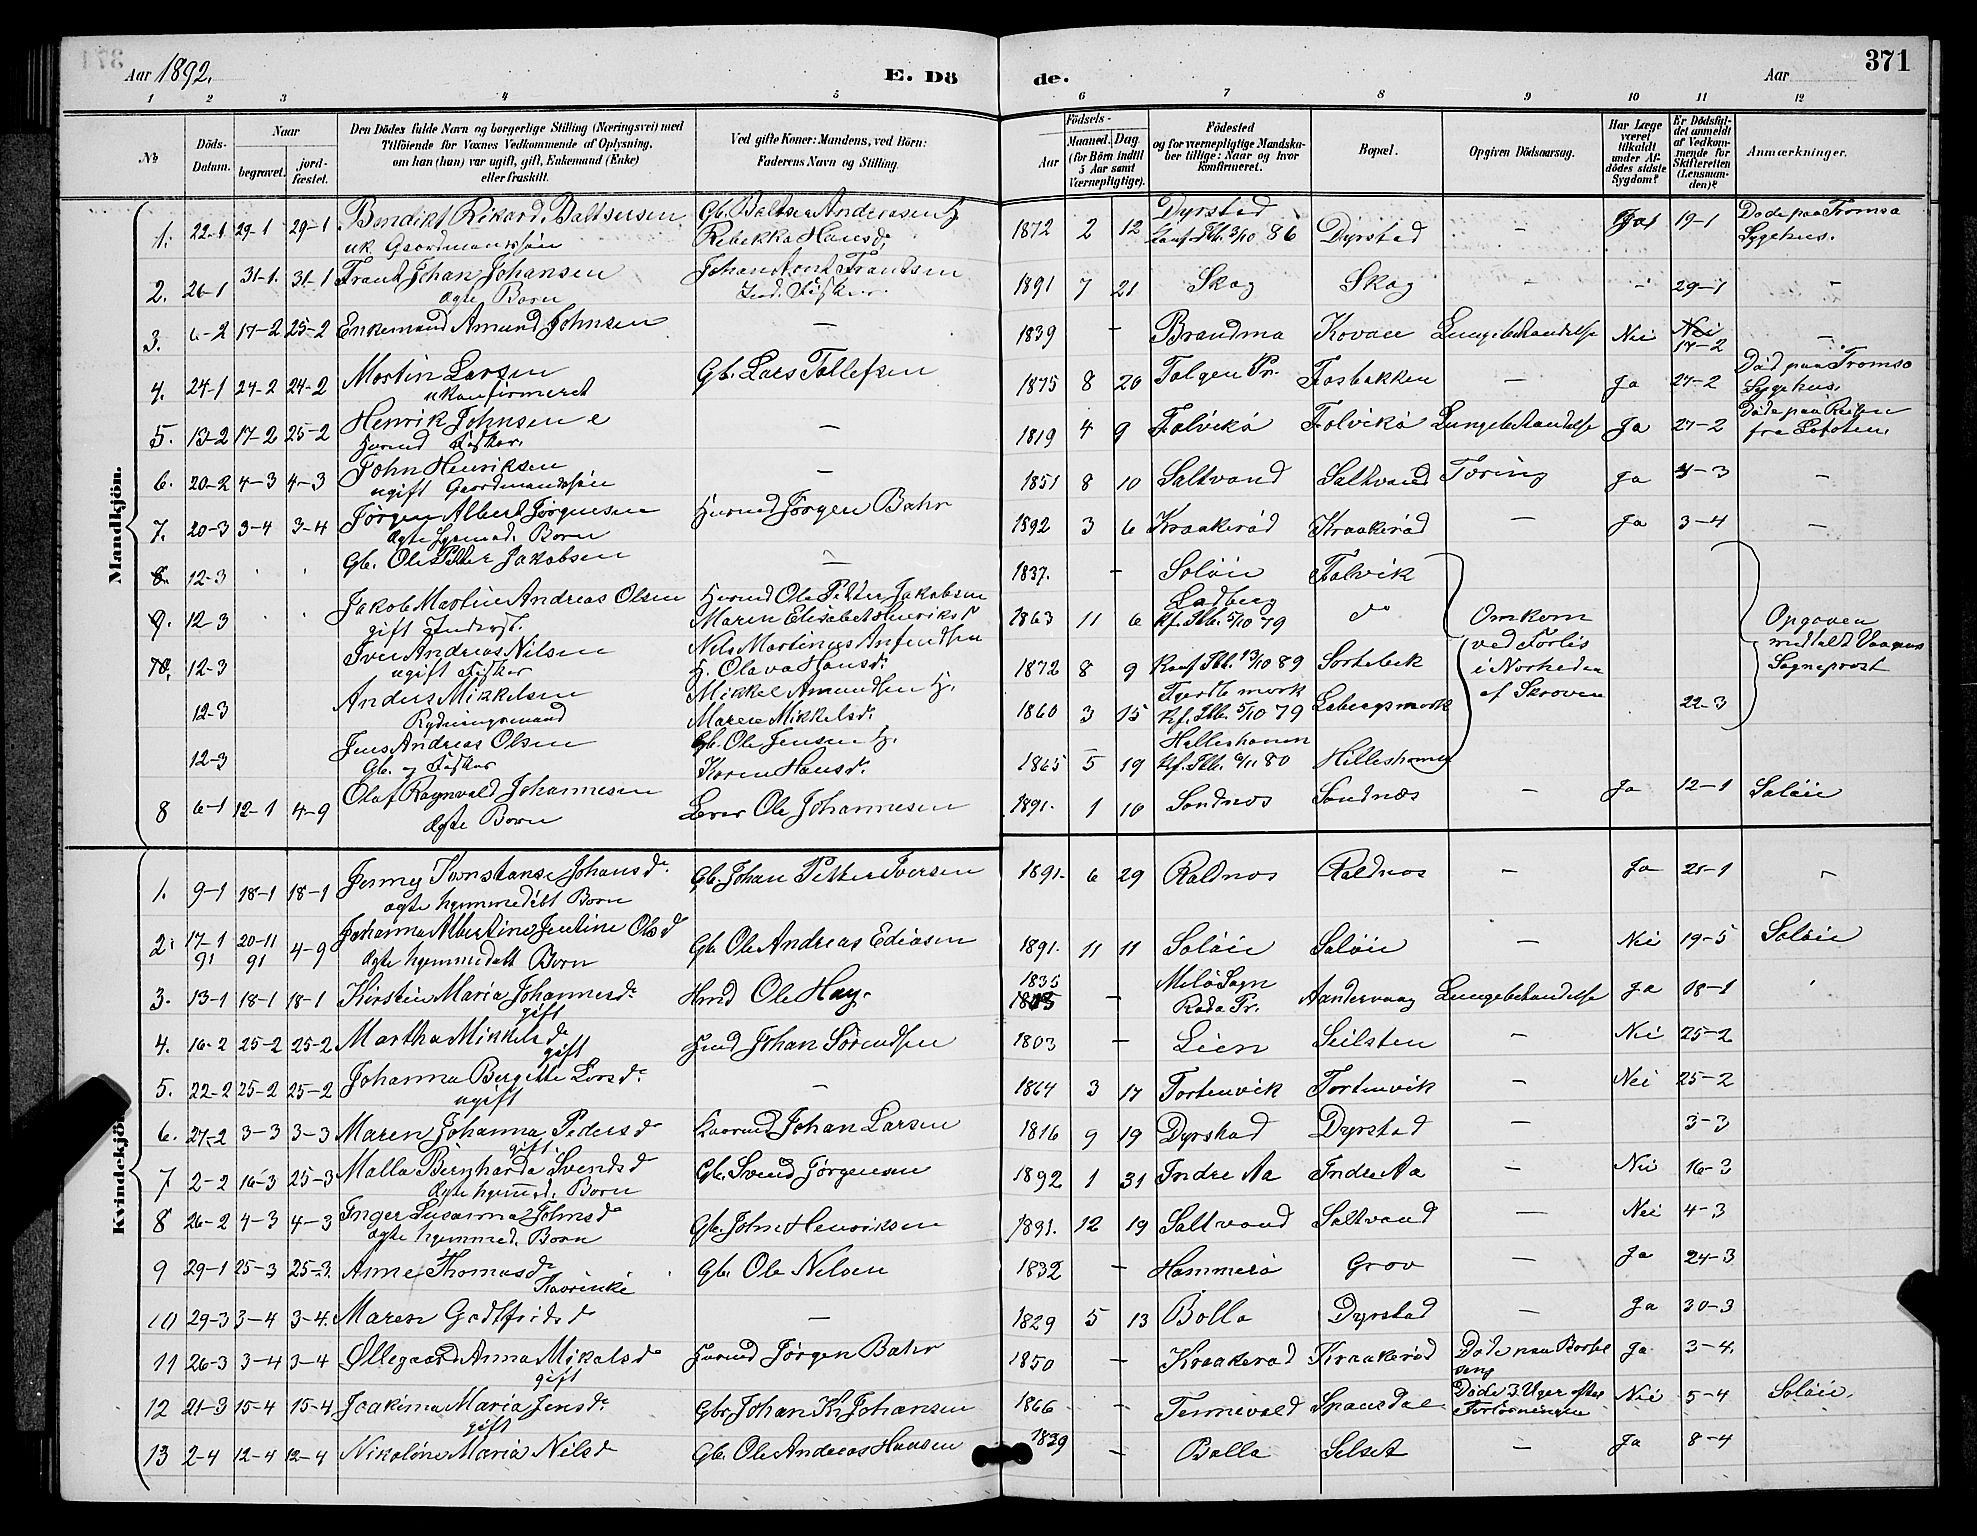 371
Aar 1892.
E. Dö
de.
Aar
1 2 3 4 5 6 7 8 9 10 11 12
No
Döds-
Datum.
Naar
begravet.
jord-
fæstet.
Den Dödes fulde Navn og borgerlige Stilling (Næringsvei) med
Tilföiende for Voxnes Vedkommende af Oplysning,
om han (hun) var ugift, gift, Enkemand (Enke)
eller fraskilt.
Ved gifte Koner: Mandens, ved Börn:
Faderens Navn og Stilling.
Födsels-
Aar
Maaned. Dag.
(for Börn indtil
5 Aar samt
Værnepligtige).
Födested
og for værnepligtige Mandska-
ber tillige: Naar og hvor
konfirmeret.
Bopæl.
Opgiven Dödsaarsag.
Har Læge
været
tilkaldt
under Af-
dödes sidste
Sygdom?
Er Dödsfal-
det anmeldt
af Vedkom-
mende for
Skifteretten
(Lensman-
den)?
Anmærkninger.
Mandkjön.
1. 22-1 29-1 29-1 Bendikt Rikard Baltsersen Gb. Baltser Andreasen H
uk Gaardmandssøn Rebekka Hansd.
1872 2 12 Dyrstad Dyrstad - Ja 19-1 Døde paa Tromsø
Sygehus.
2. 26-1 31-1. 31-1 Frants Johan Johansen Johan Frantsen
ægte Barn
1891 7 21 Skog Skog - - 29-1 -
3. 6-2 17-2 25-2 Enkemand Amund Johnsen -
1839 - Brandmo Kovaen Lungebetændelse Nei Nei
17-2 -
4. 24-1 27-2 24-2 Martin Larsen Gb. Lars Tollefsen
ukonfirmeret
1875 8 20 Tolgen Pr. Fosbakken - Ja 27-2 Død paa Tromsø
Sygehus.
5. 13-2 17-2 25-2 Henrik Johnsen -
Husmd Fisker.
1819 4 9 Falvikø Falvikø Lungebetændelse Ja 27-2 Døde paa Reisen
fra Lofoten.
6. 20-2 4-3 4-3 John Henriksen -
ugift Gaardmandssøn
1851 8 10 Saltvand Saltvand Tæring Ja 4-3 -
7. 20-3 3-4 3-4 Jørgen Albert Jørgensen Husmd Jørgen Bahr
ægte hjemmed. Barn
1892 3 6 Kraakerød Kraakerød - Ja 3-4 -
8. 12-3 Gb. Ole Petter Jakobsen -
1837. - Soløie Falvik
9. 12-3 Jakob Martin Andreas Olsen Husmd Ole Petter Jakobsen
gift Inderst. Maren Elisabet Henriksd
1863 11 6 Ladberg do Omkom Opgaven
Kf. Ibb. 5/10 79
10. 12-3 Iver Andreas Nilsen Nils Martinus Arfendsen
ugift Fisker H. Olava Hansd.
1872 8 9 Konf Ibb. 13/10 89 Sortebek ved Forlis meddelt Vaagans
i Norheden Sogneprest
12-3 Anders Mikkelsen Mikkel Amundsen H.
Rydningsmand Maren Mikkelsd.
1860 3 15 Kf. Ibb. 5/10 79 Lebergsmark af Skroven 22-3
12-3 Jens Andreas Olsen Gb. Ole Jensen H.
Gb. og Fisker Karen Hansd.
1865 5 19 Hilleshamn Hilleshamn
8 6-1 12-1 4-9 Olaf Ragnvald Johannesen Lærer Ole Johannesen
ægte Barn
1891. 1 10 Sandnæs Sandnæs - Ja 12-1 Soløie
Kvindekjön.
1. 9-1 18-1 18-1 Jenny Konstanse Johansd. Gb. Johan Petter Iversen
ægte hjemmedøbt Barn
1891. 6 29 Raldnos Raldnos - Ja 21-1 -
2. 17-1 20-11 4-9 Johanna Albertine Jentine Olsd Gb. Ole Andreas Ediasen
91 91 ægte hjemmedøbt Barn
1891. 11 11 Soløie Soløie - Nei 19-5 Soløie
3. 13-1 18-1 18-1 Kirstin Maria Johannesd. Hmd Ole Hay.
gift
1835 - Rada Pr. Aandervaag Lungebetændelse Ja 18-1
4. 16-2 25-2 25-2 Martha Mikkelsd Husmd Johan Sørendsen
gift
1803 - Lien Seilsten - Nei 25-2
5. 22-2 25-2 25-2 Johanna Bergitte Larsd. -
ugift
1864 3 17 Tortenvik Tortenvik - Nei 25-2
6. 27-2 3-3 3-3 Maren Johanna Pedersd Kaarmd Johan Larsen
gift.
1816 9 19 Dyrstad Dyrstad - 3-3
7 2-2 16-3 25-3 Malla Bernharda Svendsd Gb. Svend Jørgensen
ægte hjemmed. Barn
1892 1 31 Indre Aa Indre Aa - Nei 16-3
8 26-2 4-3 4-3 Inger Susanna Johnsd Gb. John Henriksen
ægte hjemmed. Barn
1891. 12 19 Saltvand Saltvand - Nei 4-3
9 29-1 25-3 25-3. Anne Thomasd. Gb. Ole Nilsen
Kaarenke
1832 - Hammerø Grov - Ja 24-3
10 29-3 3-4 3-4. Maren Godtfridsd -
1829 5 13 Bolla Dyrstad - Ja 30-3
11 26-3 3-4 3-4 Øllegaard Anna Mikalsd Husmd Jørgen Bahr
gift
1850 - Kraakerød Kraakerød Døde paa Barsel Ja 3-4.
seng
12 21-3 15-4 15-4 Joakima Maria Jensd. Gbr. Johan Kr. Johansen
gift
1866 - Tennevold Spansdal Døde 3 Uger efter Nei 5-4 Soløie.
Forløsningen
13 2-4 12-4 12-4 Nikoline Maria Nilsd Gb. Ole Andreas Hansen
1839 - Bolla Selset - Ja 8-4